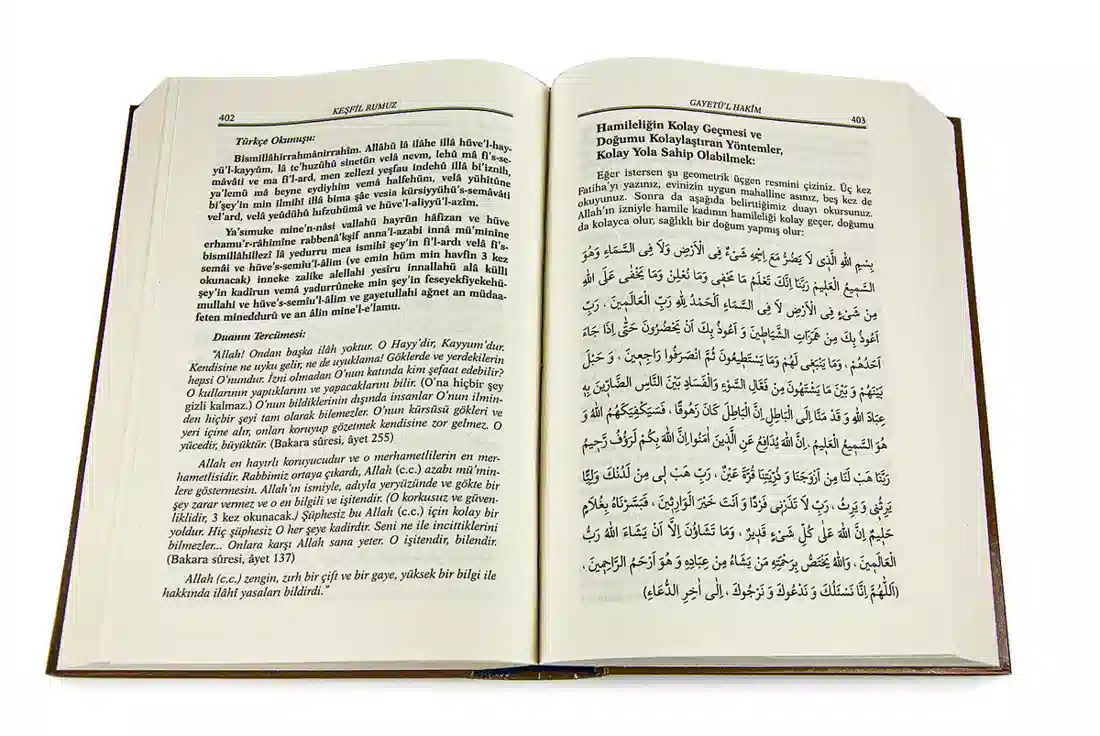 402
KEŞFİL RUMUZ
Türkçe Okunuşu:
Bismillâhirrahmânirrahîm. Allâhü lâ ilâhe illâ hüve'l-hay-
yü'l-kayyûm, lâ te'huzühû sinetün velâ nevm, lehû mâ fi's-se-
mâvâti ve ma fi'l-ard, men zellezi yeşfau indehû illâ bi'iznih,
ya'lemü mâ beyne eydiyhim vemâ halfehüm, velâ yühîtûne
bi'şey'in min ilmihî illâ bima şâe vesia kürsiyyühü's-semâvâti
vel'ard, velâ yeûdühû hıfzuhümâ ve hüve'l-aliyyü'l-azîm.
Ya'simuke mine'n-nâsi vallahü hayrün hâfizan ve hüve
erhamu'r-râhimîne rabbenâ'kşif anna'l-azabi innâ mü'minîne
bismillâhillezî lâ yedurru mea ismihî şey'in fi'l-ardı velâ fi's-
semâi ve hüve's-semîu'l-âlim (ve emin hüm min havfin 3 kez
okunacak) inneke zalike alellahi yesîru innallahü alâ külli
şey'in kadîrun vemâ yadurrûneke min şey'in feseyekfiyekehü-
mullahi ve hüve's-semîu'l-âlim ve gayetullahi ağnet an müdaa-
feten mineddurû ve an âlin mine'l-e'lamu.
Duanın Tercümesi:
"Allah! Ondan başka ilâh yoktur. O Hayy'dir, Kayyum'dur.
Kendisine ne uyku gelir, ne de uyuklama! Göklerde ve yerdekilerin
hepsi O'nundur. İzni olmadan O'nun katında kim şefaat edebilir?
O kullarının yaptıklarını ve yapacaklarını bilir. (O'na hiçbir şey
gizli kalmaz.) O'nun bildiklerinin dışında insanlar O'nun ilmin-
den hiçbir şeyi tam olarak bilemezler. O'nun kürsüsü gökleri ve
yeri içine alır, onları koruyup gözetmek kendisine zor gelmez. O
yücedir, büyüktür. (Bakara sûresi, âyet 255)
Allah en hayırlı koruyucudur ve o merhametlilerin en mer-
hametlisidir. Rabbimiz ortaya çıkardı, Allah (c.c.) azabı mü'min-
lere göstermesin. Allah'ın ismiyle, adıyla yeryüzünde ve gökte bir
şey zarar vermez ve o en bilgili ve işitendir. (O korkusuz ve güven-
liklidir, 3 kez okunacak.) Şüphesiz bu Allah (c.c.) için kolay bir
yoldur. Hiç şüphesiz O her şeye kadirdir. Seni ne ile incittiklerini
bilmezler... Onlara karşı Allah sana yeter. O işitendir, bilendir.
(Bakara sûresi, âyet 137)
Allah (c.c.) zengin, zırh bir çift ve bir gaye, yüksek bir bilgi ile
hakkında ilâhî yasaları bildirdi."
GAYETÜ'L HAKİM
403
Hamileliğin Kolay Geçmesi ve
Doğumu Kolaylaştıran Yöntemler,
Kolay Yola Sahip Olabilmek:
Eğer istersen şu geometrik üçgen resmini çiziniz. Üç kez
Fatiha'yı yazınız, evinizin uygun mahalline asınız, beş kez de
okuyunuz. Sonra da aşağıda belirttiğimiz duayı okursunuz.
Allah'ın izniyle hamile kadının hamileliği kolay geçer, doğumu
da kolayca olur, sağlıklı bir doğum yapmış olur:
بِسْمِ اللهِ الَّذِى لَا يَضُرُّ مَعَ اِسْمِهِ شَىْءٌ فِى الْاَرْضِ وَلَا فِى السَّمَاءِ وَهُوَ
السَّمِيعُ الْعَلِيمُ رَبَّنَا اِنَّكَ تَعْلَمُ مَا نُخْفِى وَمَا نُعْلِنُ وَمَا يَخْفَى عَلَى اللهِ
مِنْ شَىْءٍ فِى الْاَرْضِ لَا فِى السَّمَاءِ اَلْحَمْدُ لِلهِ رَبِّ الْعَالَمِينَ ، رَبِّ
اَعُوذُ بِكَ مِنْ هَمَزَاتِ الشَّيَاطِينَ وَ اَعُوذُ بِكَ اَنْ يَحْضُرُونَ حَتَّى اِذَا جَاءَ
اَحَدُهُمْ ، وَمَا يَنْبَغِى لَهُمْ وَمَا يَسْتَطِيعُونَ ثُمَّ انْصَرَفُوا رَاجِعِينَ ، وَ حَبْلَ
بَيْنَهُمْ وَ بَيْنَ مَا يَشْتَهُونَ مِنْ فَعَالِ السُّوْءِ وَالْفَسَادِ بَيْنَ النَّاسِ الضَّارِّينَ بِهِ
عِبَادَ اللهِ وَ قَدْ مَنَّا اِلَى الْبَاطِلِ اِنَّ الْبَاطِلَ كَانَ زَهُوقًا ، فَسَيَكْفِيكَهُمُ اللهُ وَ
هُوَ السَّمِيعُ الْعَلِيمُ ، اِنَّ اللهَ يُدَافِعُ عَنِ الَّذِينَ اٰمَنُوا اِنَّ اللهَ بِكُمْ لَرَؤُفٌ رَحِيمٌ
رَبَّنَا هَبْ لَنَا مِنْ اَزْوَجِنَا وَ ذُرِّيَّتِنَا قُرَّةَ عَيْنٍ ، رَبِّ هَبْ لِى مِنْ لَدُنْكَ وَلِيًّا
يَرِثُنِى وَ يَرِثُ ، رَبِّ لَا تَذَرْنِى فَرْدًا وَ اَنْتَ خَيْرُ الْوَارِثِينَ ، فَبَشَّرْنَاهُ بِغُلَامٍ
حَلِيمٍ اِنَّ اللهَ عَلَى كُلِّ شَىْءٍ قَدِيرٌ ، وَمَا تَشَاؤُنَ اِلَّا اَنْ يَشَاءَ اللهُ رَبُّ
الْعَالَمِينَ ، وَاللهُ يَخْتَصُّ بِرَحْمَتِهِ مَنْ يَشَاءُ مِنْ عِبَادِهِ وَ هُوَ اَرْحَمُ الرَّاحِمِينَ ،
(اَللَّهُمَّ اِنَّا نَسْئَلُكَ وَ نَدْعُوكَ وَ نَرْجُوكَ ، اِلَى اٰخِرِ الدُّعَاءِ)